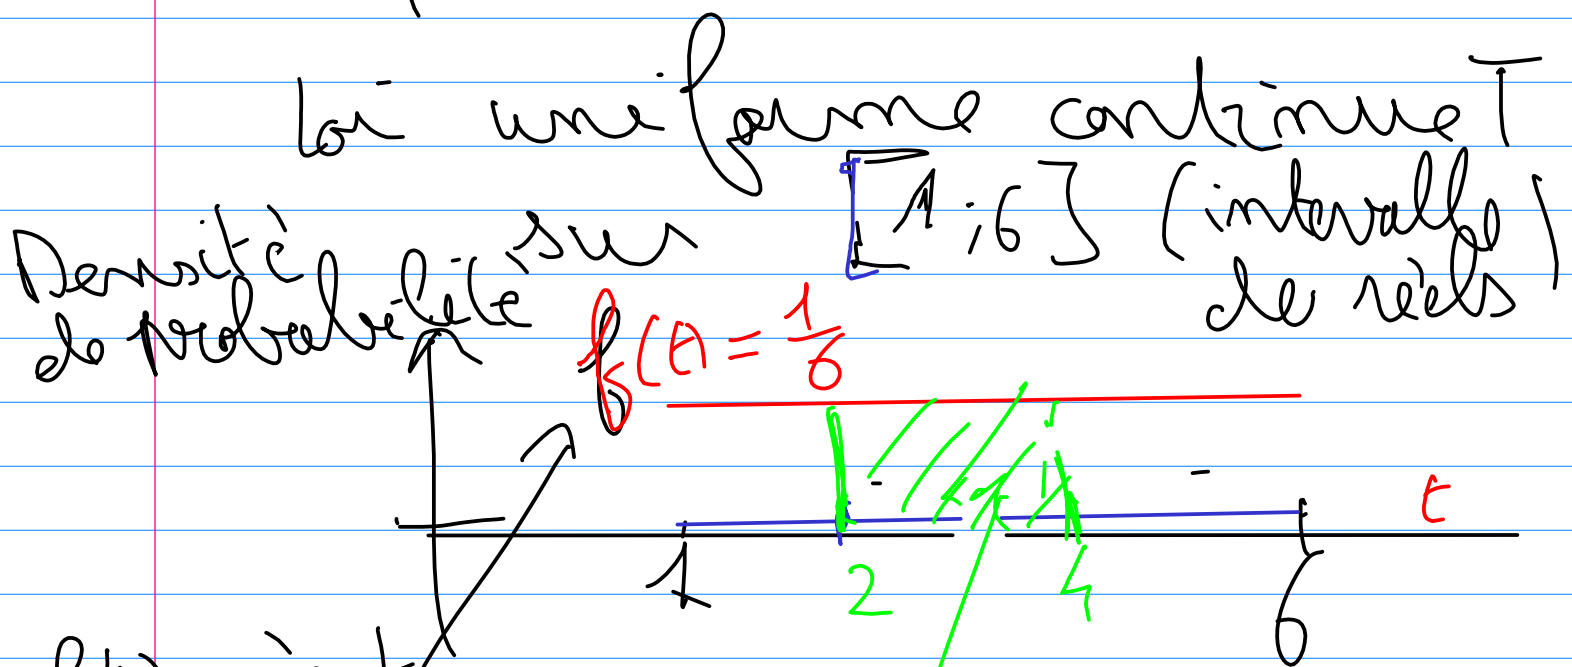 Loi uniforme continue T
sur [1 ; 6] (intervalle
de réels)
Densité
de probabilité
f(t) = 1/6
t
1 2 4 6